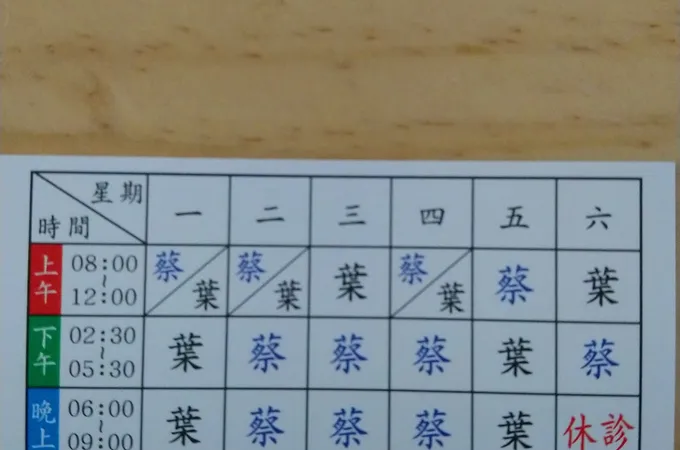 星期 一 二 三 四 五 六
時間
上午 08:00~12:00 蔡/葉 蔡/葉 葉 蔡/葉 蔡 葉
下午 02:30~05:30 葉 蔡 蔡 蔡 葉 蔡
晚上 06:00~09:00 葉 蔡 蔡 蔡 葉 休診